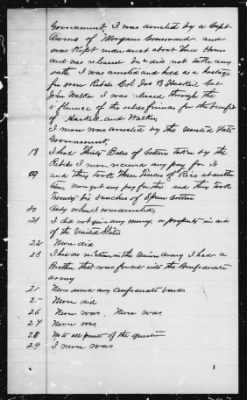 Government I was arrested by a Capt
Owens of Morgans Command and
was Kept under arrest about three Hours
and was released I did not take any
oath. I was arrested and held as a hostage
for some Rebels Col Jno B
John Walker I was released through the
influence of the rebels friends for the benefit
of and Walker
I never was arrested by the United States
Government.
18 I had thirty Bales of Cotton taken by the
Rebels I never received any pay for it
19 and they took three Tierces of Rice at another
time never got any pay for the and they took
Ninety six bunches of Spun Cotton
20 Only when
21 I did not give any money or property in aid
of the United States
22 Never did
23 I had no in the Union Army I had a
Brother that was forced into the Confederate
army
24 Never owned any Confederate bonds
25 Never did
26 Never was. Never was
27 Never was
28 No to all parts of the question
29 I never was